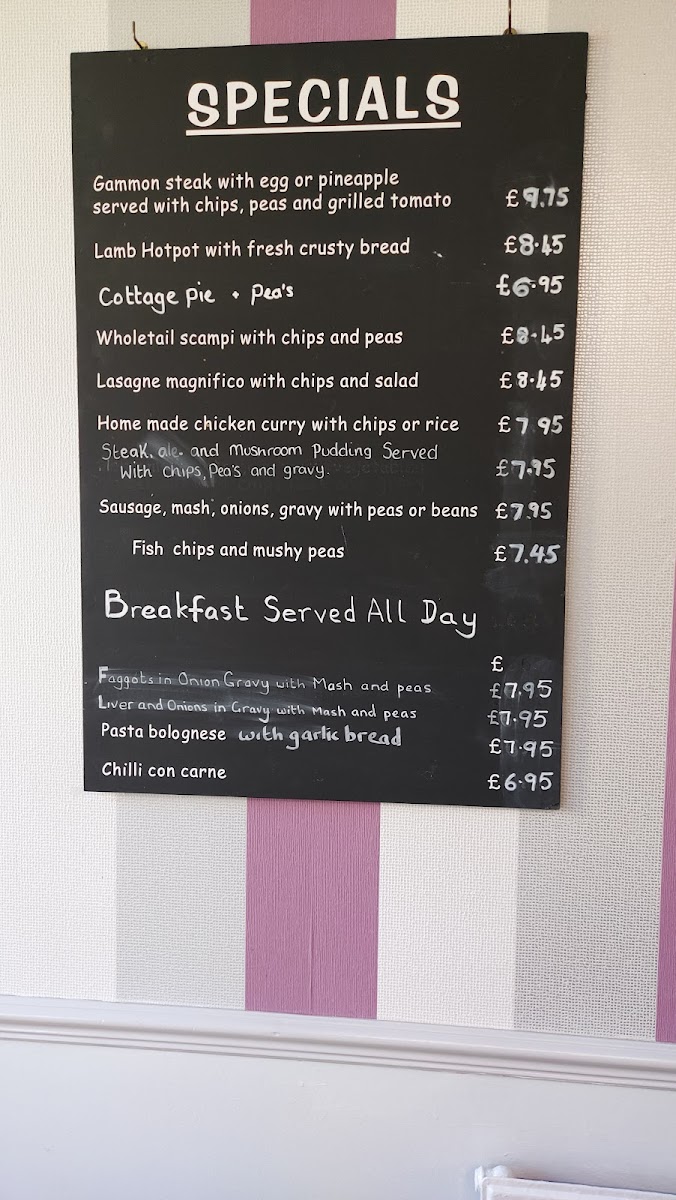 SPECIALS
Gammon steak with egg or pineapple
served with chips, peas and grilled tomato £9.75
Lamb Hotpot with fresh crusty bread £8.45
Cottage pie + Pea's £6.95
Wholetail scampi with chips and peas £8.45
Lasagne magnifico with chips and salad £8.45
Home made chicken curry with chips or rice £7.95
Steak, ale. and Mushroom Pudding Served
With chips, Pea's and gravy. £7.95
Sausage, mash, onions, gravy with peas or beans £7.95
Fish chips and mushy peas £7.45
Breakfast Served All Day
£
Faggots in Onion Gravy with Mash and peas £7.95
Liver and Onions in Gravy with Mash and peas £7.95
Pasta bolognese with garlic bread £7.95
Chilli con carne £6.95